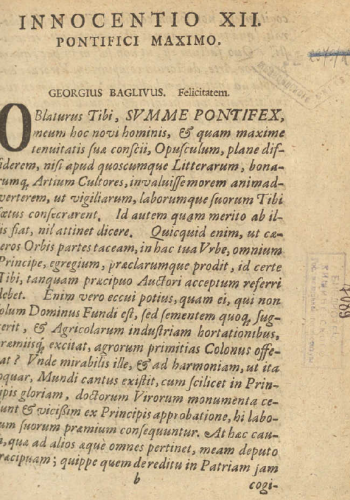 INNOCENTIO XII.
PONTIFICI MAXIMO.
GEORGIUS BAGLIVUS. Felicitatem.
OBlaturus Tibi, SVMME PONTIFEX,
meum hoc novi hominis, & quam maxime
tenuitatis sua conscii, Opusculum, plane dif-
fiderem, nisi apud quoscumque Litterarum, bona-
rumq, Artium Cultores, invaluisse morem animad-
verterem, ut vigiliarum, laborumque suorum Tibi
fœtus consecrarent. Id autem quam merito ab il-
is fiat, nil attinet dicere. Quicquid enim, ut cæ-
eros Orbis partes taceam, in hac tua Vrbe, omnium
Principe, egregium, præclarumque prodit, id certe
Tibi, tanquam præcipuo Auctori acceptum referri
debet. Enim vero eccui potius, quam ei, qui non
olum Dominus Fundi est, sed sementem quoq, sug-
gerit, & Agricolarum industriam hortationibus,
præmiisq, excitat, agrorum primitias Colonus offe-
at? Vnde mirabilis ille, & ad harmoniam, ut ita
oquar, Mundi cantus existit, cum scilicet in Prin-
ipis gloriam, doctorum Virorum monumenta ce-
unt & vicissim ex Principis approbatione, hi labo-
um suorum præmium consequuntur. At hac cau-
a, qua ad alios æque omnes pertinet, meam deputo
ræcipuam; quippe quem de reditu in Patriam jam
b
cogi-